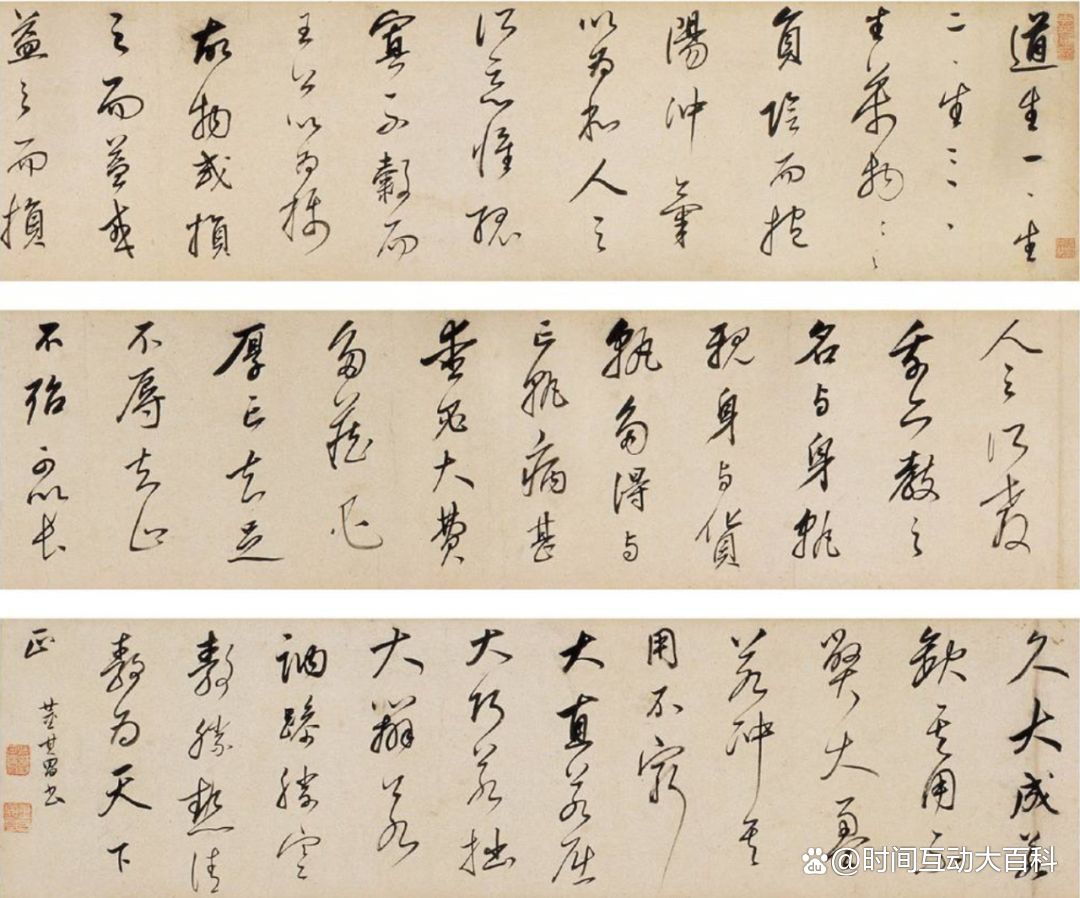 道生一、生
二、生三、、
生萬物、、
負陰而抱
陽沖氣
以為和人之
所惡惟孤
寡不穀而
王公以為稱
故物或損
之而益或
益之而損
人之所教
我亦教之
名与身孰
親身与貨
孰多得与
亡孰病甚
愛必大費
多藏必
厚亡知足
不辱知止
不殆可以長
久大成若
缺其用不
弊大盈
若沖其
用不窮
大直若屈
大巧若拙
大辯若
訥躁勝寒
靜勝熱清
靜為天下
正
董其昌書
@时间互动大百科